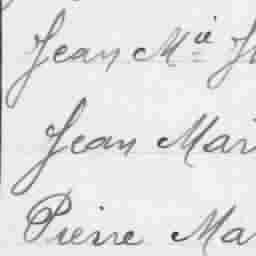 Jean Mie
Jean Mari
Pierre Ma